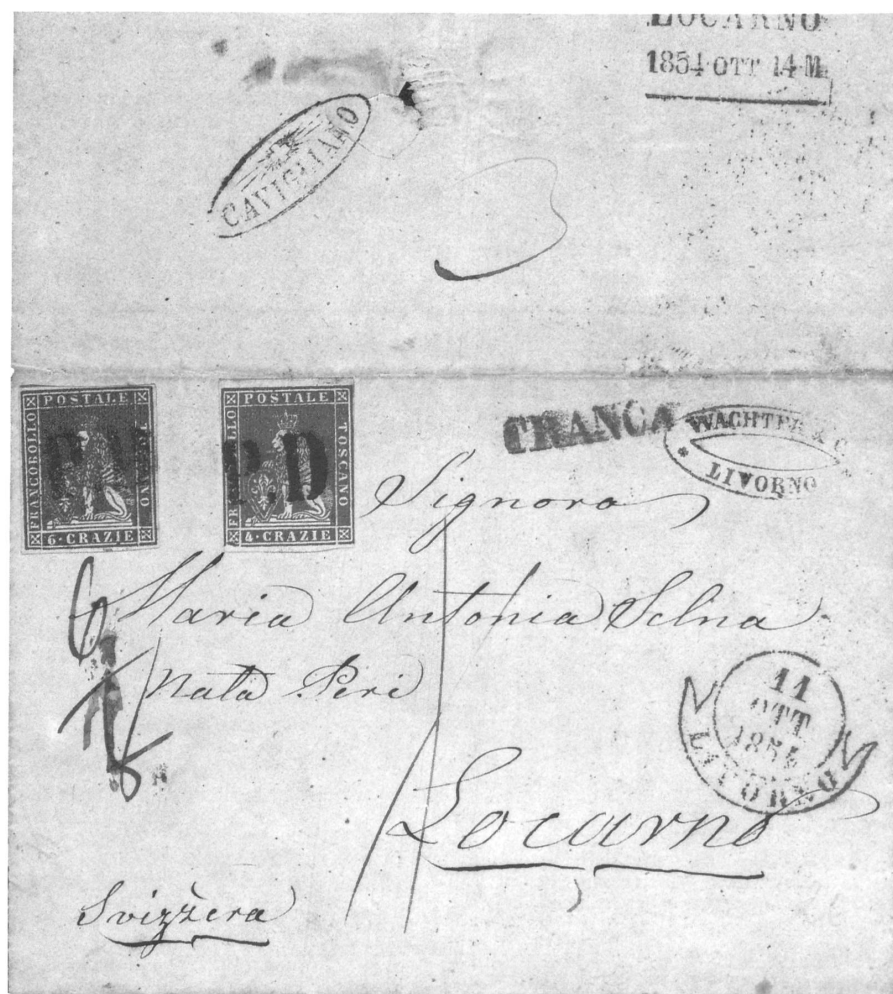 LOCARNO
1854·OTT 14·M
CAVIGLIANO
FRANCOBOLLO
POSTALE
6·CRAZIE
POSTALE
TOSCANO
4·CRAZIE
P.D
FRANCA
WACHTER & C
* LIVORNO
Signora
Maria Antonia Selna
Nata Peri
11
OTT
1854
LIVORNO
Locarno
Svizzera